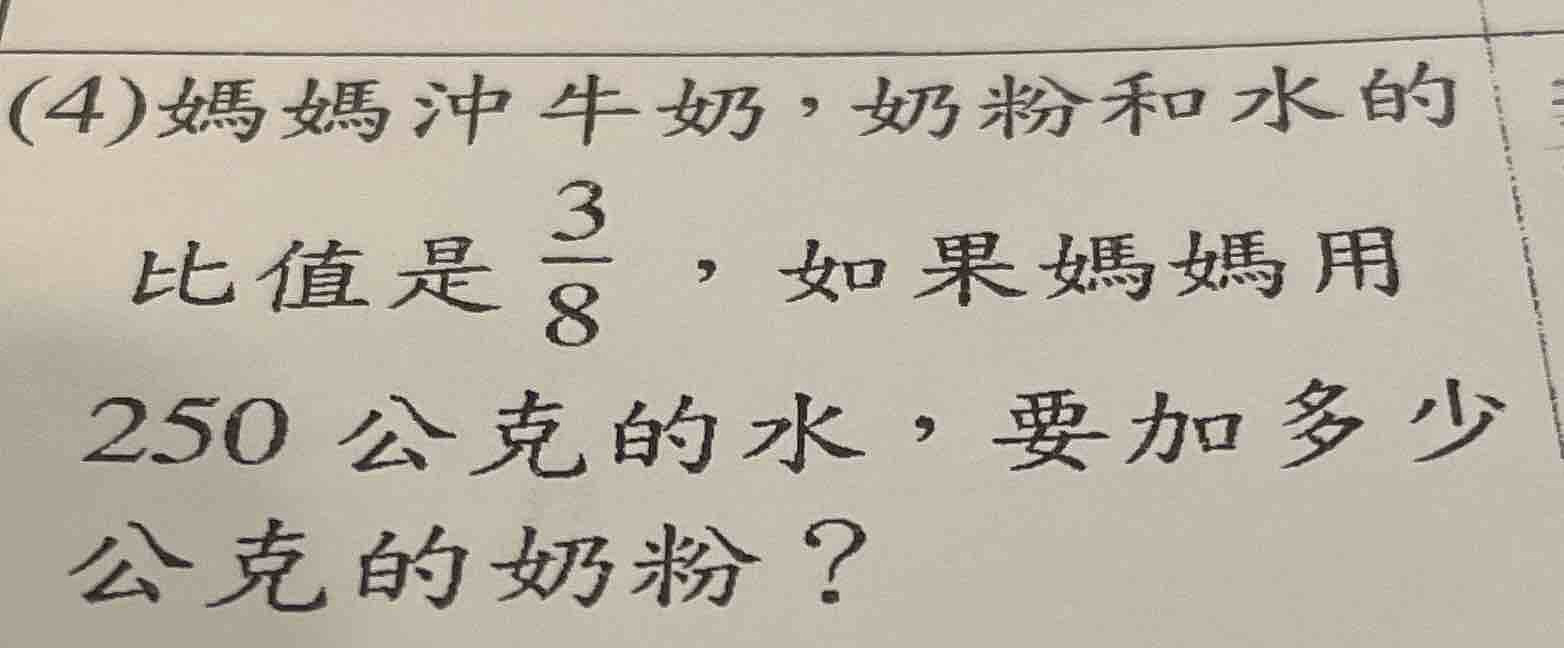 (4)媽媽沖牛奶，奶粉和水的
比值是 3/8 ，如果媽媽用
250 公克的水，要加多少
公克的奶粉？